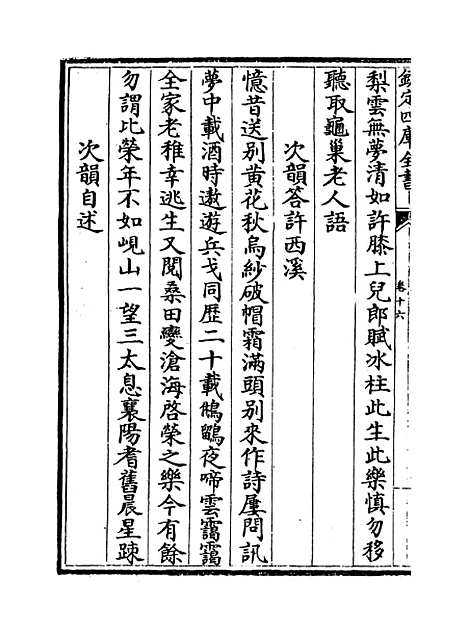 欽定四庫全書
卷十六
梨雲無夢清如許膝上兒郎賦冰柱此生此樂慎勿移
聽取龜巢老人語
次韻答許西溪
憶昔送别黄花秋烏紗破帽霜滿頭别來作詩屢問訊
夢中載酒時遨遊兵戈同歴二十載鵂鶹夜啼雲靄靄
全家老稚幸逃生又閱桑田變滄海啓榮之樂今有餘
勿謂比榮年不如峴山一望三太息襄陽耆舊晨星踈
次韻自述